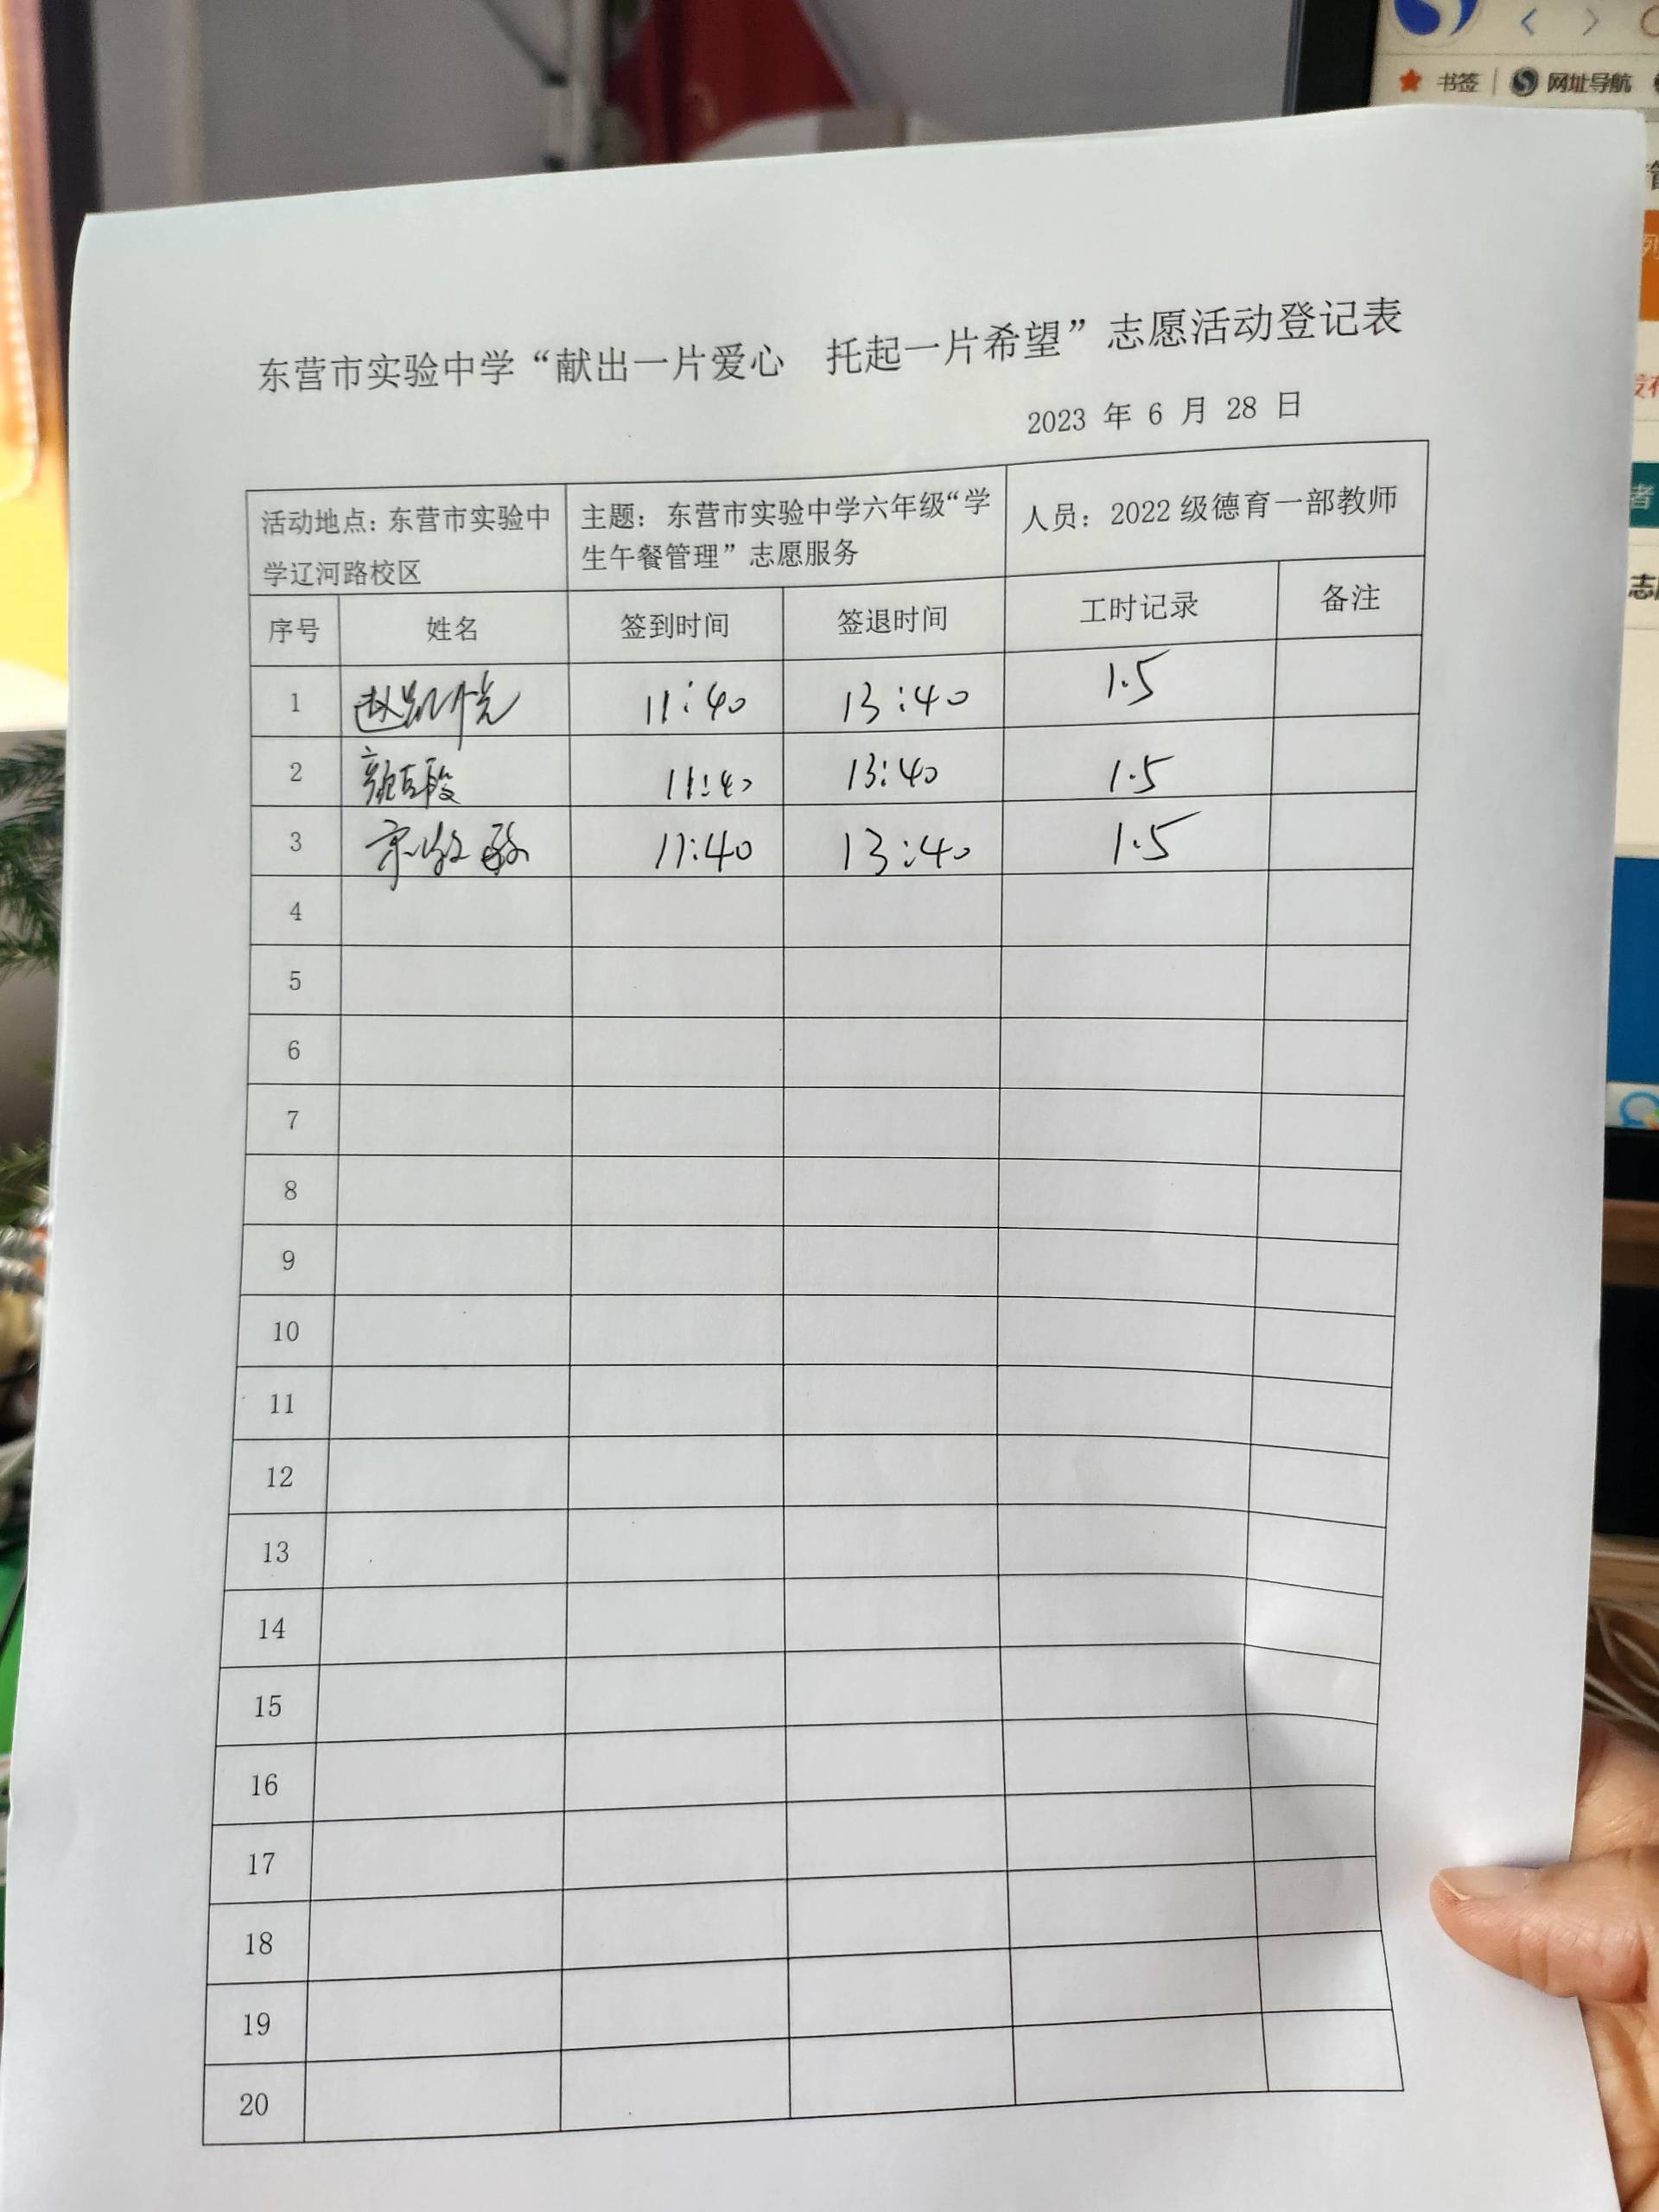 书签
网址导航
东营市实验中学“献出一片爱心 托起一片希望”志愿活动登记表
2023 年 6 月 28 日
活动地点：东营市实验中
学辽河路校区
主题：东营市实验中学六年级“学
生午餐管理”志愿服务
人员：2022 级德育一部教师
序号 姓名 签到时间 签退时间 工时记录 备注
1 11:40 13:40 1.5
2 11:40 13:40 1.5
3 11:40 13:40 1.5
4
5
6
7
8
9
10
11
12
13
14
15
16
17
18
19
20